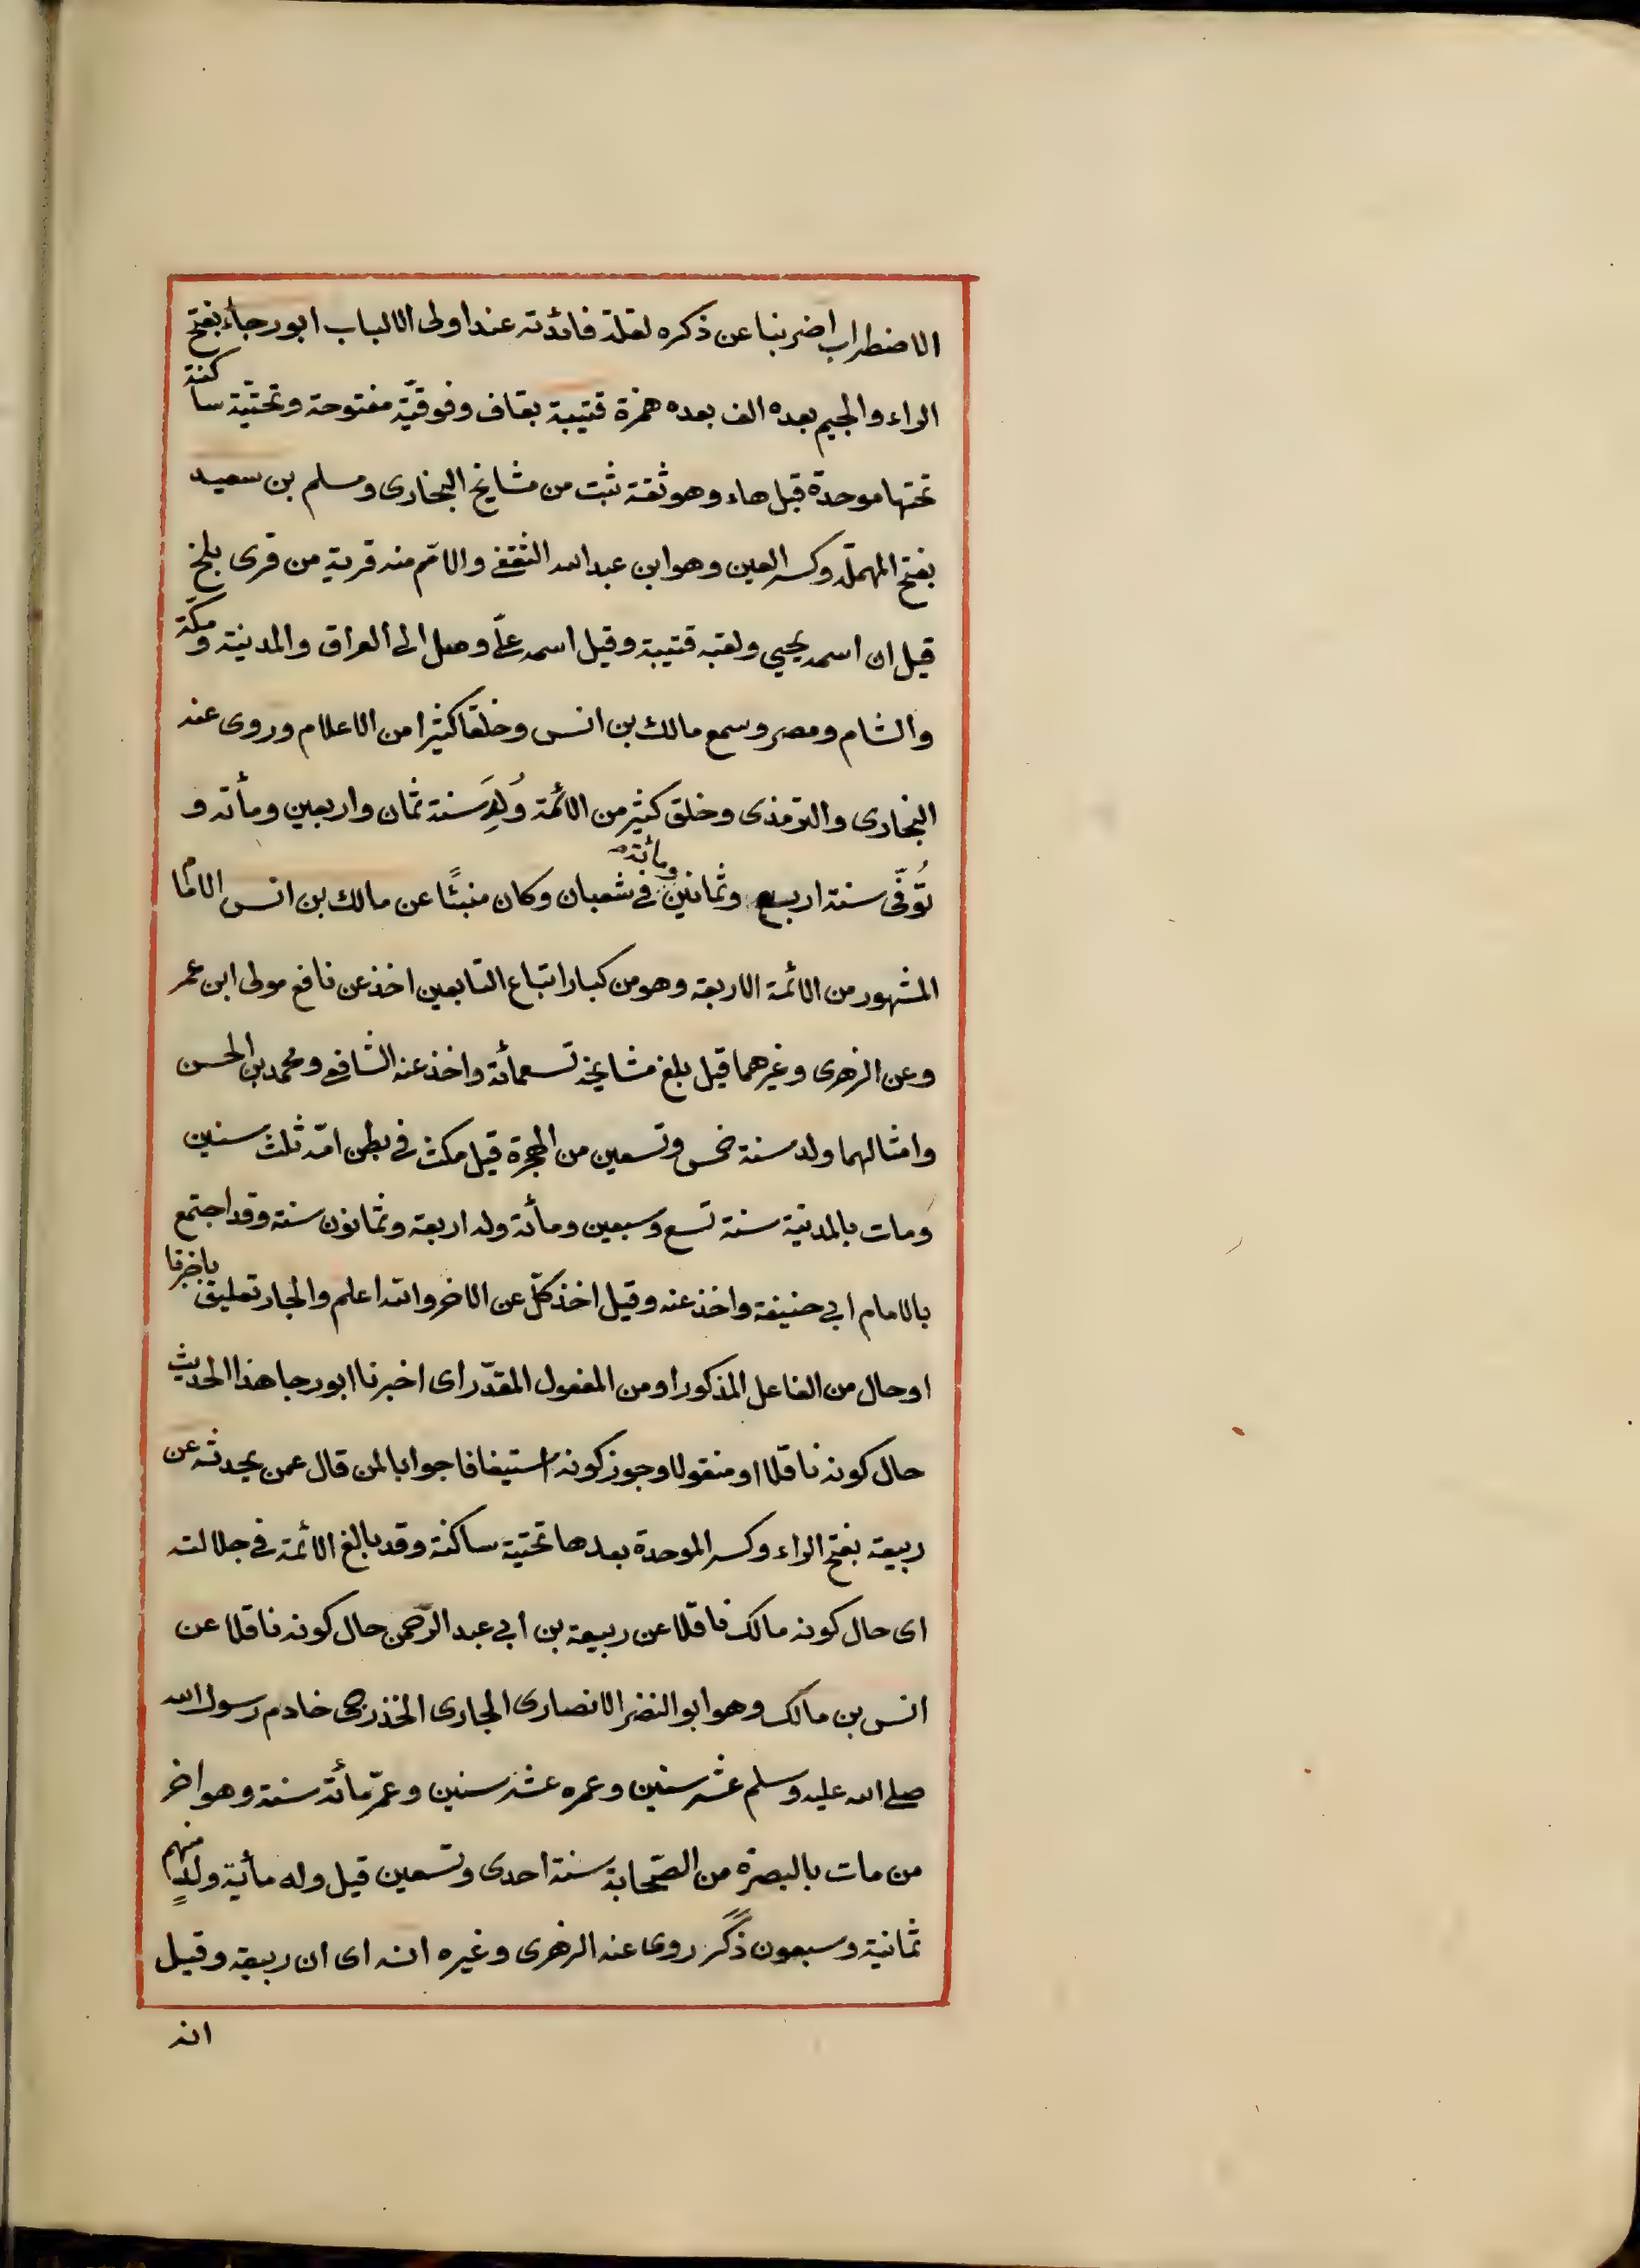 الاضطراب اضربنا عن ذكره لقلة فائدته عند اولى الالباب ابو رجاء بفتح
الراء والجيم بعده الف بعده همزة قتيبة بقاف وفوقيّة مفتوحة وتحتيّة ساكنة
تحتها موحدة قبل هاء وهو ثقة ثبت من مشايخ البخارى ومسلم بن سعيد
بفتح المهملة وكسر العين وهو ابن عبد الله الثقفى والاتم منه قرية من قرى بلخ
قيل ان اسمه يحيى ولقبه قتيبة وقيل اسمه علىّ وصل الى العراق والمدينة ومكّة
والشام ومصر وسمع مالك بن انس وخلقا كثيرا من الاعلام وروى عنه
البخارى والترمذى وخلق كثير من الائمة وُلِدَ سنة ثمان واربعين ومأته و
تُوفّى سنة اربع وثمانين ومأئة فى شعبان وكان منبئًا عن مالك بن انس الامام
المشهور من الائمة الاربعة وهو من كبار اتباع التابعين اخذ عن نافع مولى ابن عمر
وعن الزهرى وغيرهما قيل بلغ مشايخه تسعمائة واخذ عنه الشافعى ومحمد بن الحسن
وامثالهما ولد سنة خمس وتسعين من الهجرة قيل مكث فى بطن امّه ثلث سنين
ومات بالمدينة سنة تسع وسبعين ومأئة وله اربعة وثمانون سنة وقد اجتمع
بالامام ابي حنيفة واخذ عنه وقيل اخذ كلّ عن الاخر والله اعلم والجار تعليق باخبرنا
او حال من الفاعل المذكور او من المفعول المقدّر اى اخبرنا ابو رجا هذا الحديث
حال كونه ناقلا او منقولا وجوز كونه استيفافا جوابا لمن قال عمن يحدثه عن
ربيعة بفتح الراء وكسر الموحدة بعدها تحتية ساكنة وقد بالغ الائمة فى جلالته
اى حال كونه مالك ناقلا عن ربيعة بن ابي عبد الرّحمن حال كونه ناقلا عن
انس بن مالك وهو ابو النضر الانصارى الجارى الخذرجى خادم رسول الله
صلى الله عليه وسلم عشر سنين وعمره عشر سنين وعمّر مأئة سنة وهو اخر
من مات بالبصرة من الصّحابة سنة احدى وتسعين قيل وله مأية ولد منهم
ثمانية وسبعون ذكر روى عنه الزهرى وغيره انه اى ان ربيعة وقيل
انه